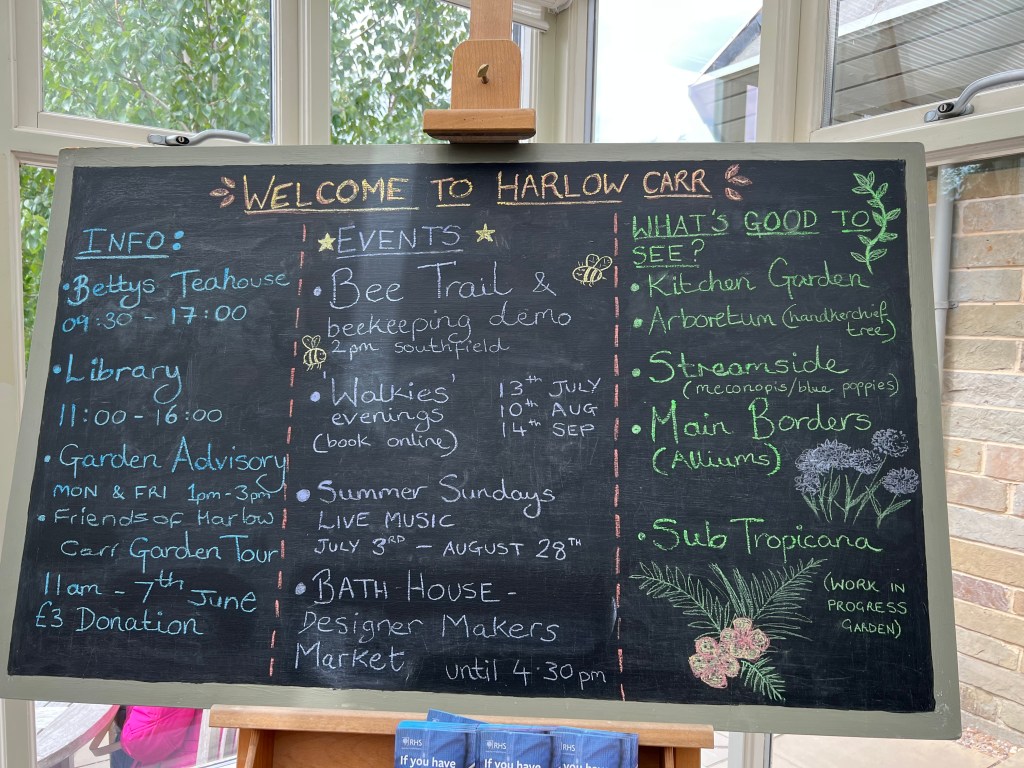 WELCOME TO HARLOW CARR
INFO:
• Bettys Teahouse
09:30 - 17:00
• Library
11:00 - 16:00
• Garden Advisory
MON & FRI 1pm-3pm
• Friends of Harlow
Carr Garden Tour
11am - 7th June
£3 Donation
EVENTS
• Bee Trail &
beekeeping demo
2pm southfield
• 'Walkies' 13th JULY
evenings 10th AUG
(book online) 14th SEP
• Summer Sundays
LIVE MUSIC
JULY 3RD - AUGUST 28TH
• BATH HOUSE -
Designer Makers
Market until 4.30pm
WHAT'S GOOD TO
SEE?
• Kitchen Garden
• Arboretum (handkerchief
tree)
• Streamside
(meconopis/blue poppies)
• Main Borders
(Alliums)
• Sub Tropicana
(WORK IN
PROGRESS
GARDEN)
RHS
If you have
RHS
If you have
RHS
you have